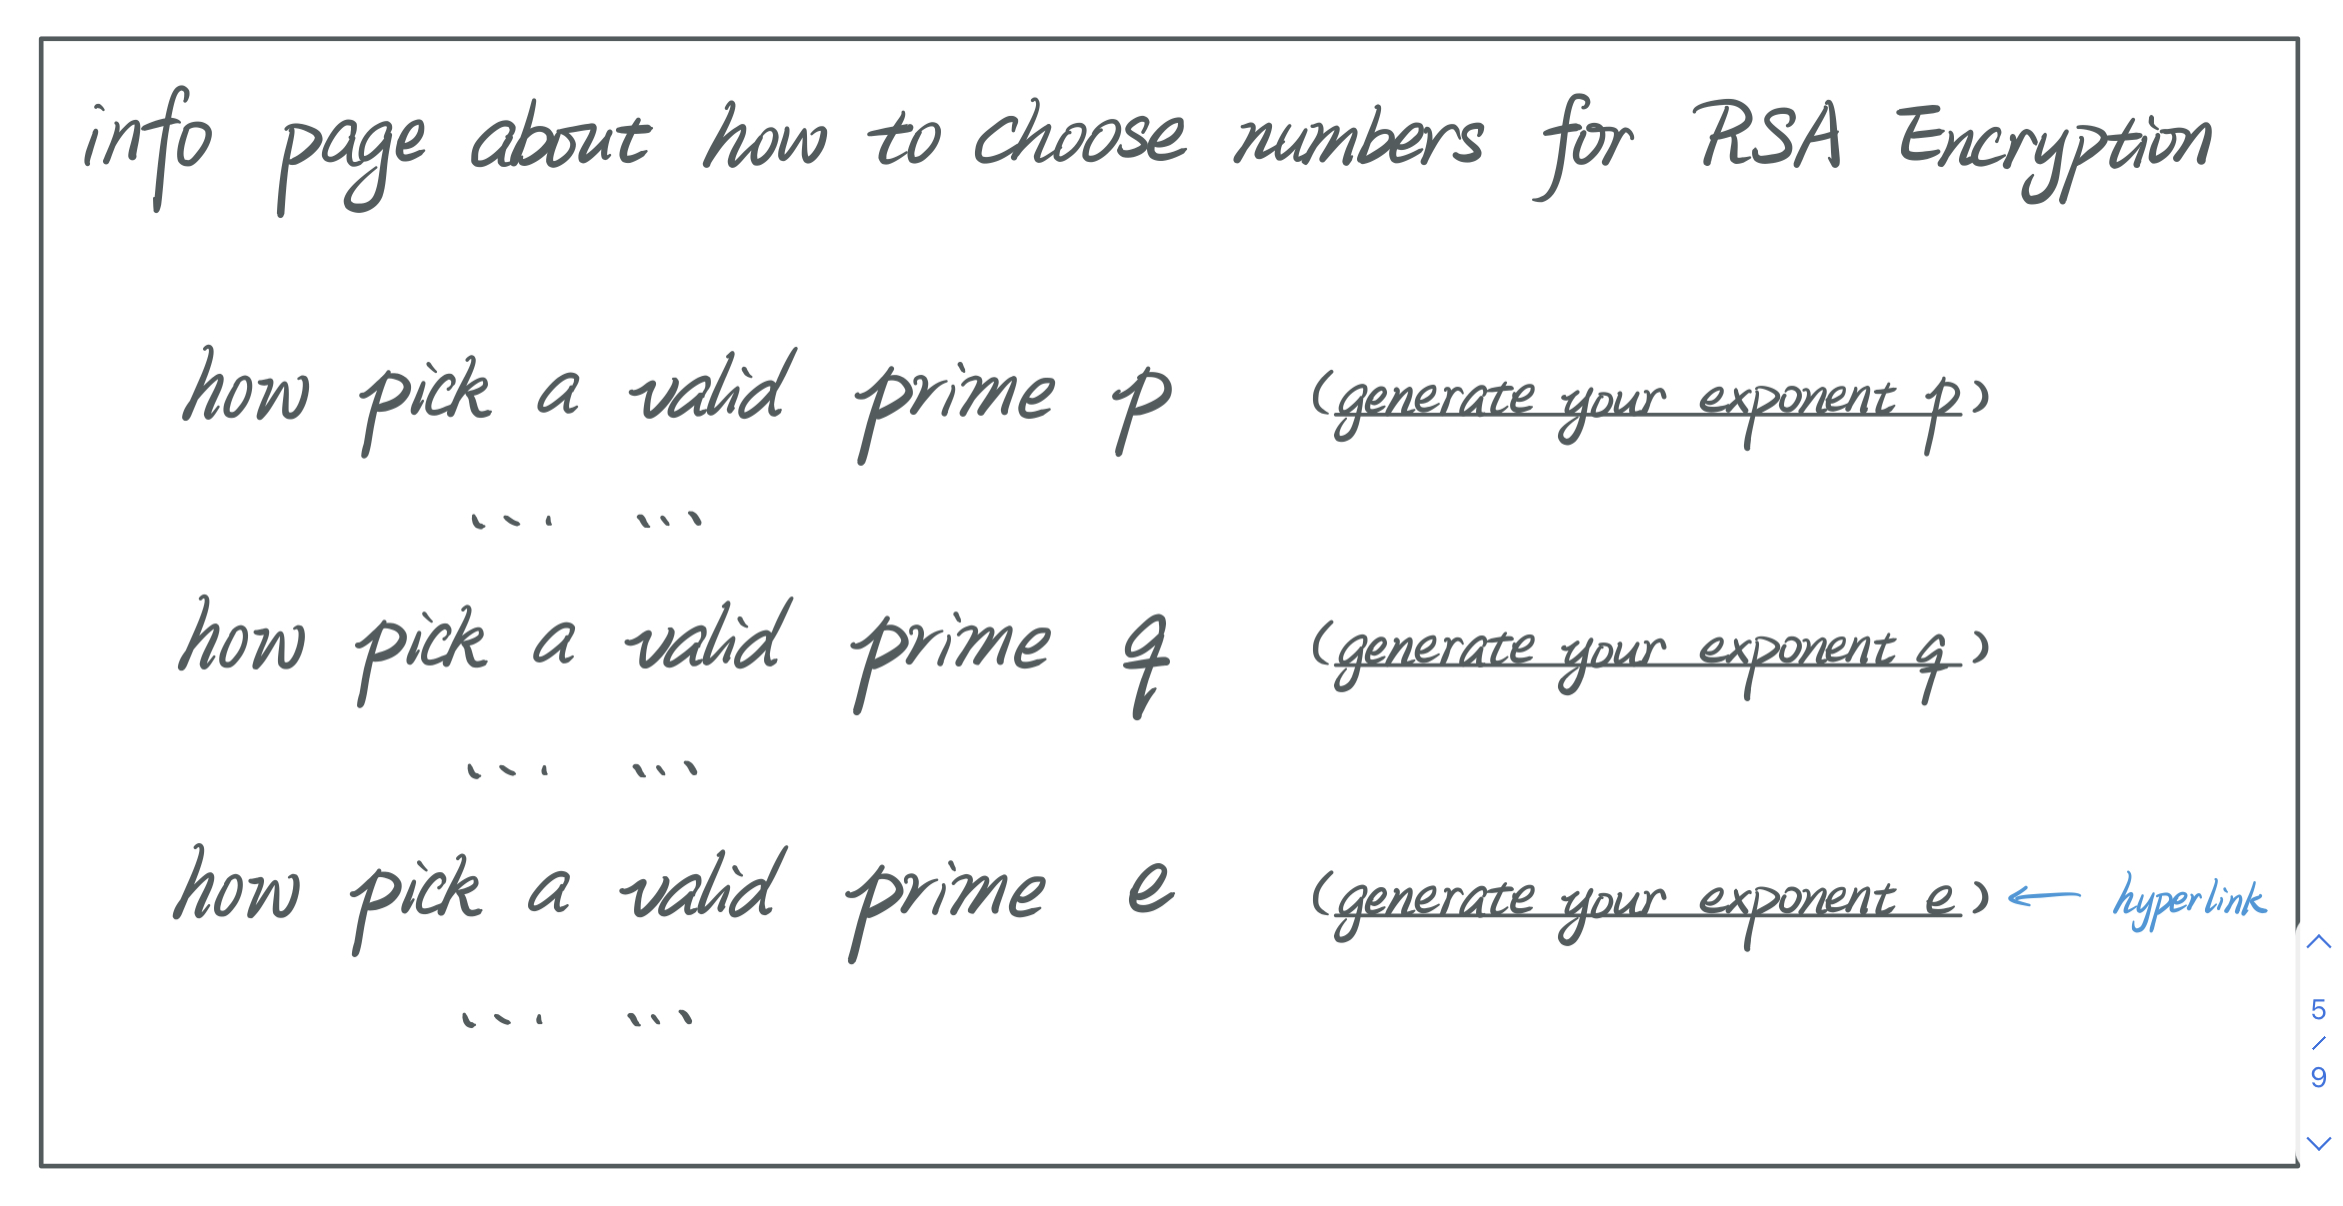 info page about how to choose numbers for RSA Encryption
how pick a valid prime p (generate your exponent p)
... ...
how pick a valid prime q (generate your exponent q)
... ...
how pick a valid prime e (generate your exponent e) ← hyperlink
... ...
5
/
9